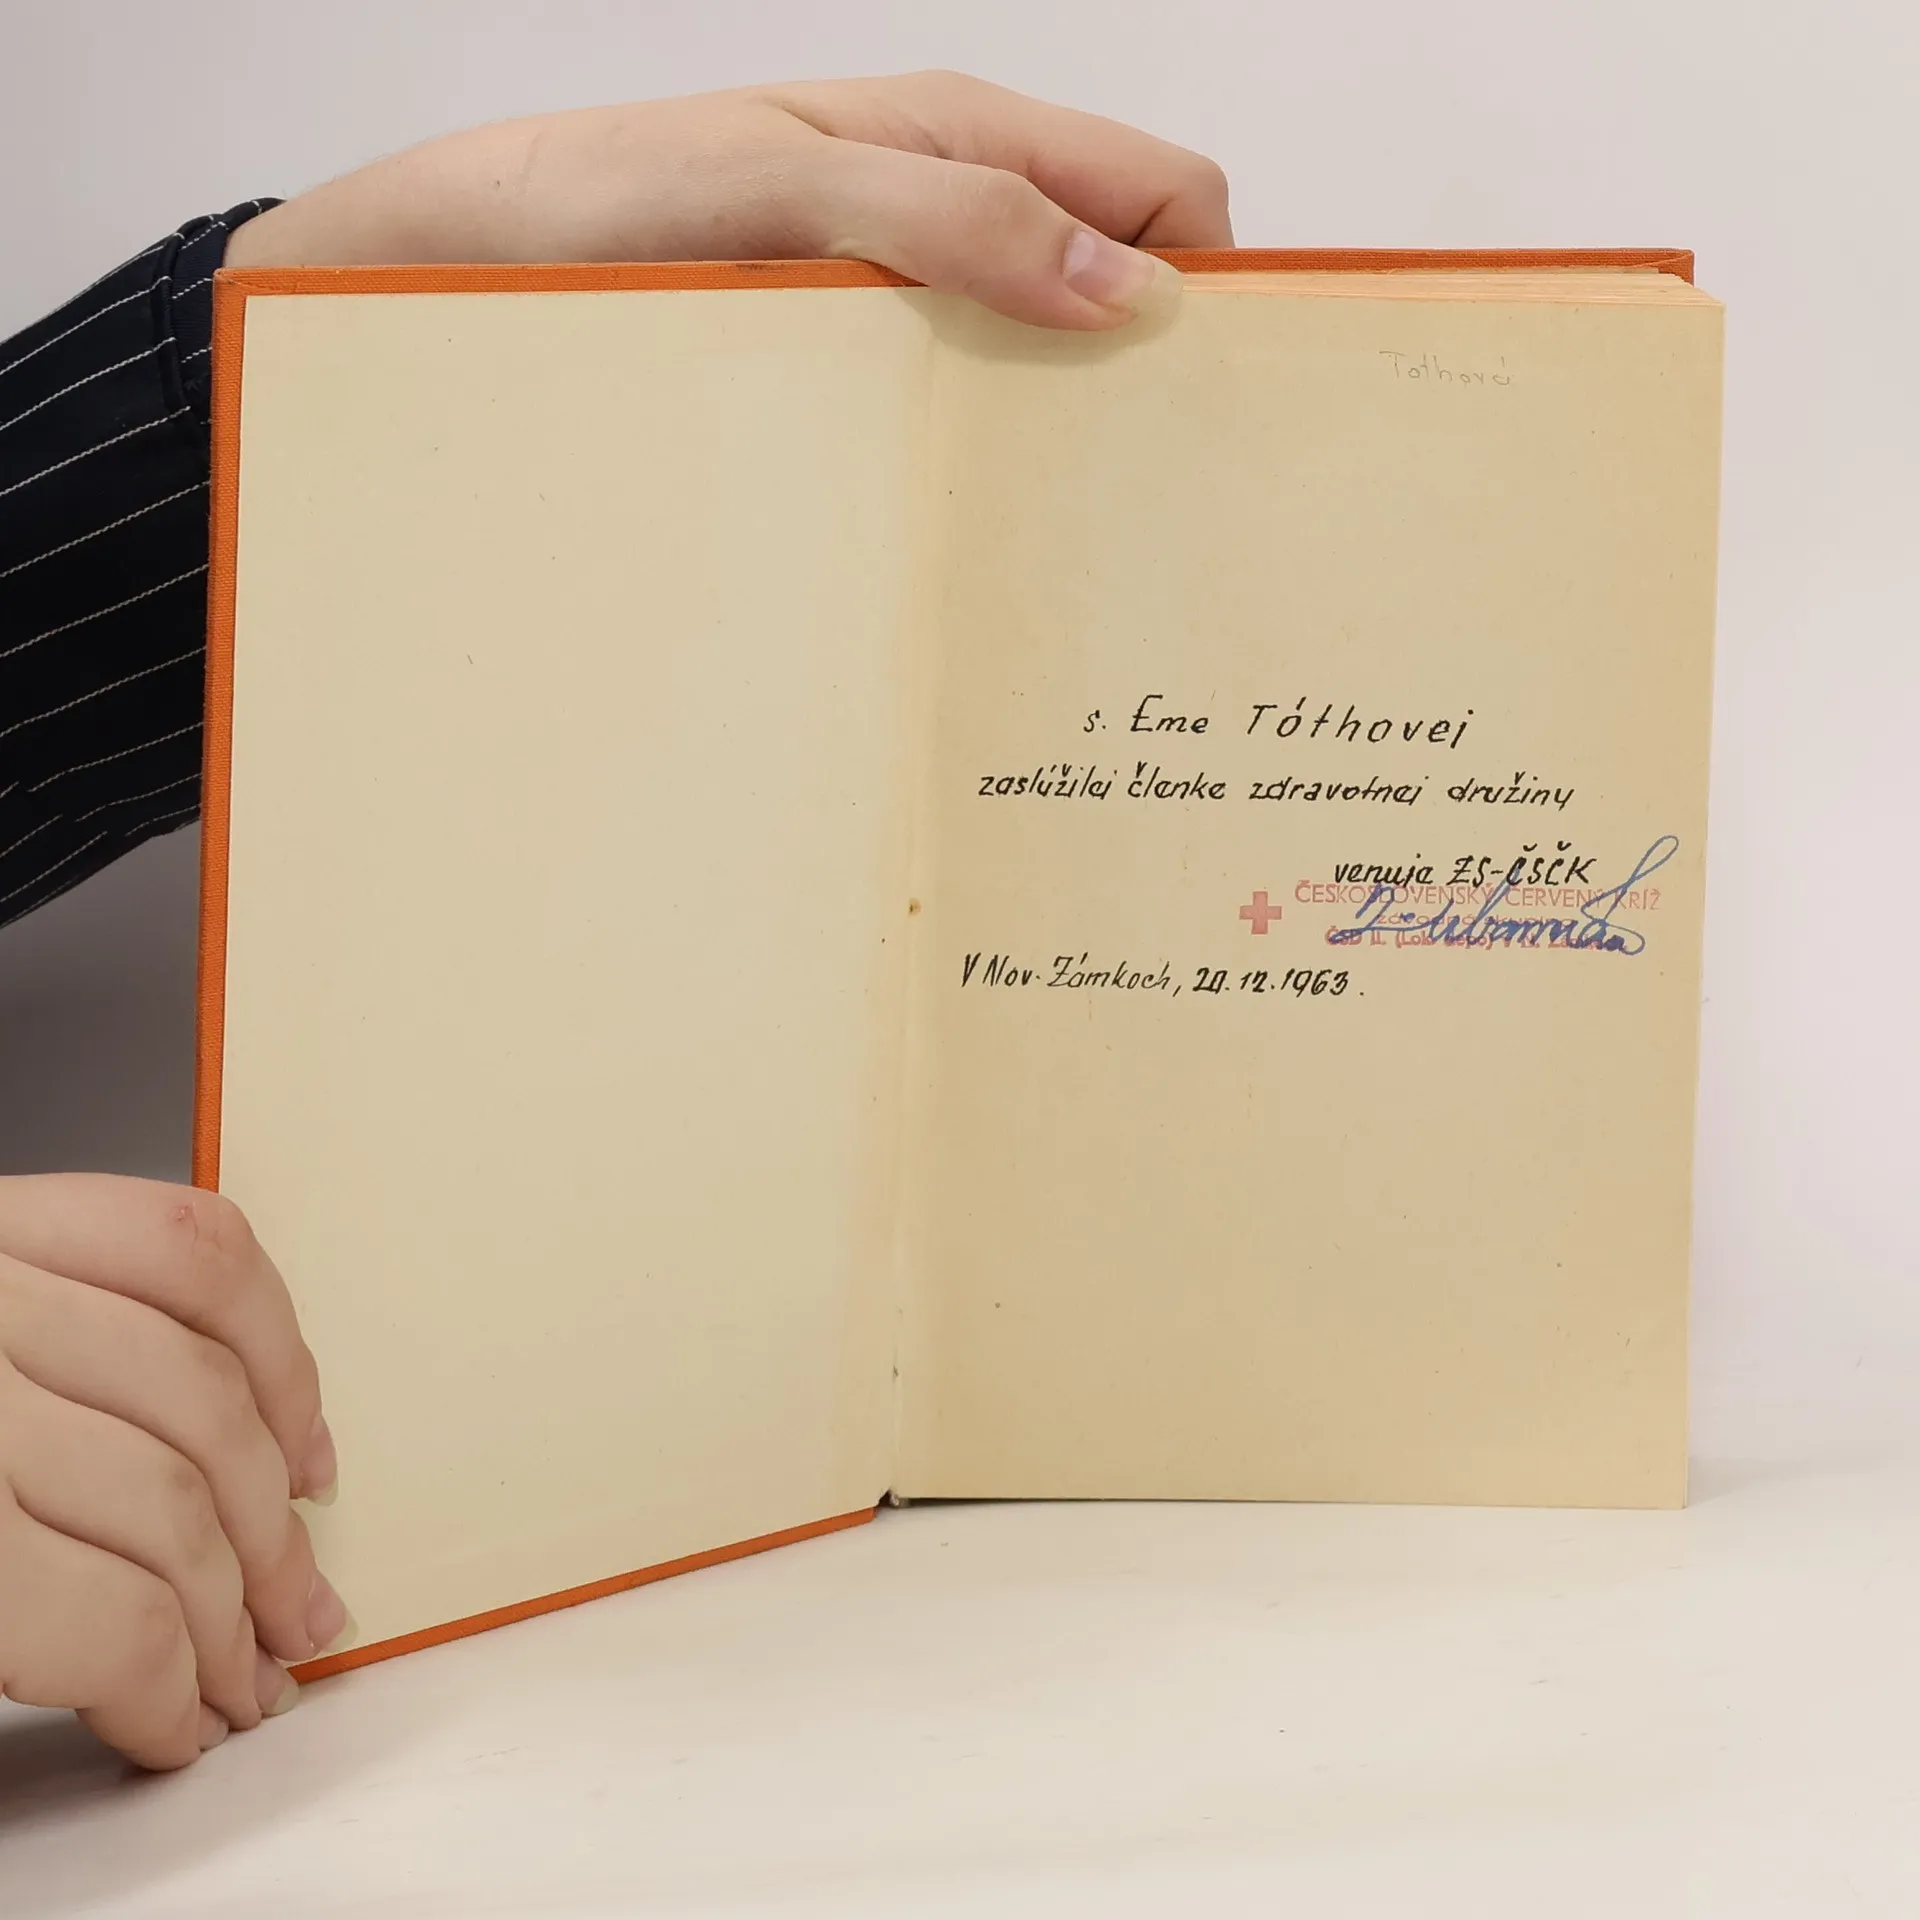 Tothová
s. Eme Tóthovej
zaslúžilej členke zdravotnej družiny
venuje ZS-ČSČK
ČESKOSLOVENSKÝ ČERVENÝ KRÍŽ
závodná skupina
ČSD II. (Lok. depo) v N.
V Nov. Zámkoch, 20.12.1963.